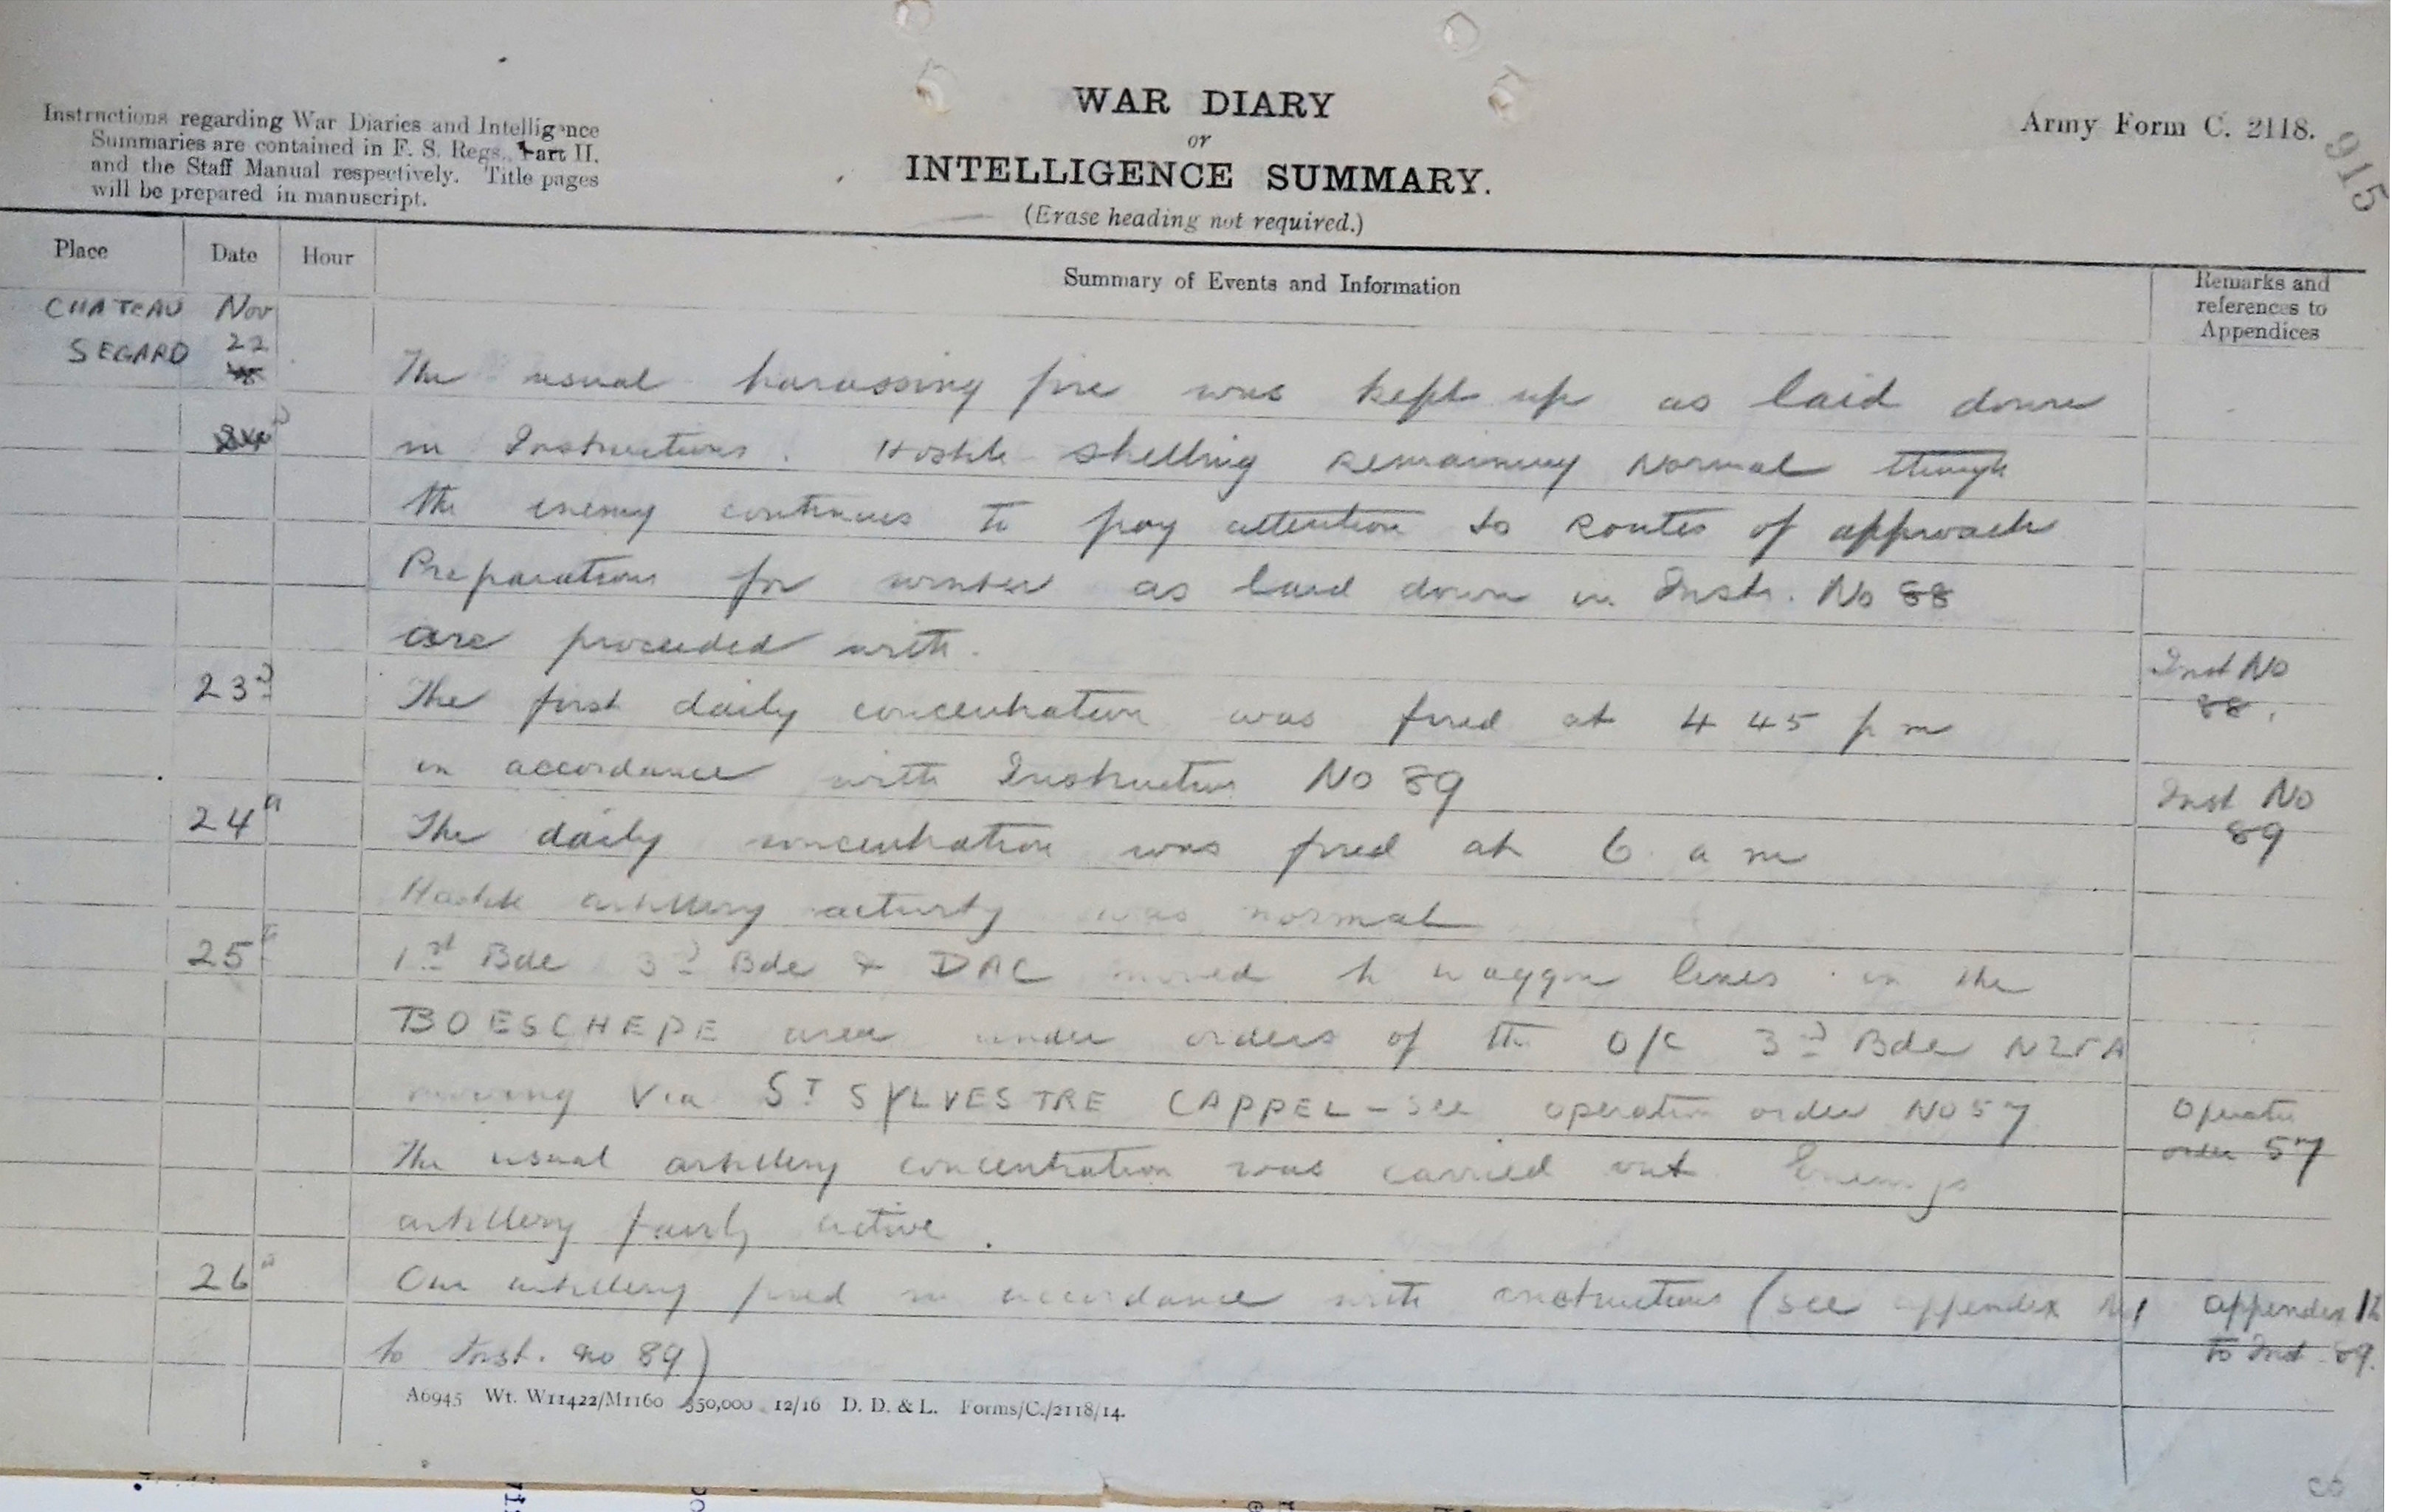 Instructions regarding War Diaries and Intelligence
Summaries are contained in F. S. Regs., Part II.
and the Staff Manual respectively. Title pages
will be prepared in manuscript.
WAR DIARY
or
INTELLIGENCE SUMMARY.
(Erase heading not required.)
Army Form C. 2118.
915
Place Date Hour Summary of Events and Information Remarks and
references to
Appendices
CHATEAU Nov
SEGARD 22
The usual harassing fire was kept up as laid down
in Instructions. Hostile shelling remaining Normal though
the enemy continues to pay attention to Routes of approach
Preparations for winter as laid down in Instr. No 88
are proceeded with. Inst No
88.
23D The first daily concentration was fired at 4 45 p m
in accordance with Instructions No 89 Inst No
89
24th The daily concentration was fired at 6 a m
Hostile artillery activity was normal
25th 1st Bde 3D Bde & DAC moved to waggon lines in the
BOESCHEPE area under orders of the O/C 3D Bde NZFA
moving via ST SYLVESTRE CAPPEL - see operation order No 57 Operation
order 57
The usual artillery concentration was carried out Enemys
artillery fairly active.
26th Our artillery fired in accordance with instructions (see appendix No 1 appendix
to Inst 89.
to Inst. no 89)
A6945 Wt. W11422/M1160 350,000 12/16 D. D. & L. Forms/C./2118/14.